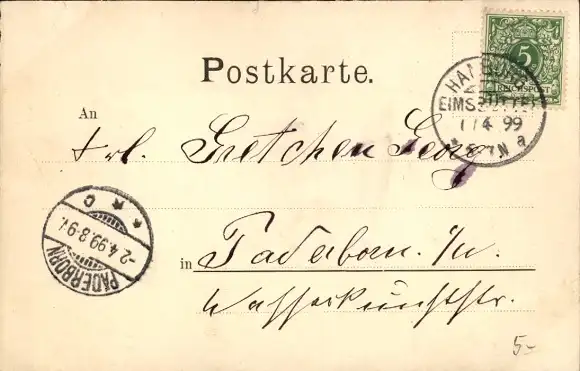 5
REICHSPOST
Postkarte.
HAMBURG
EIMSBÜTTEL
1/4 99
5-6N a
An
Frl. Gretchen
in Paderborn. i/w.
Wasserkunststr.
PADERBORN
-2.4.99.8-9V.
* * c
5-